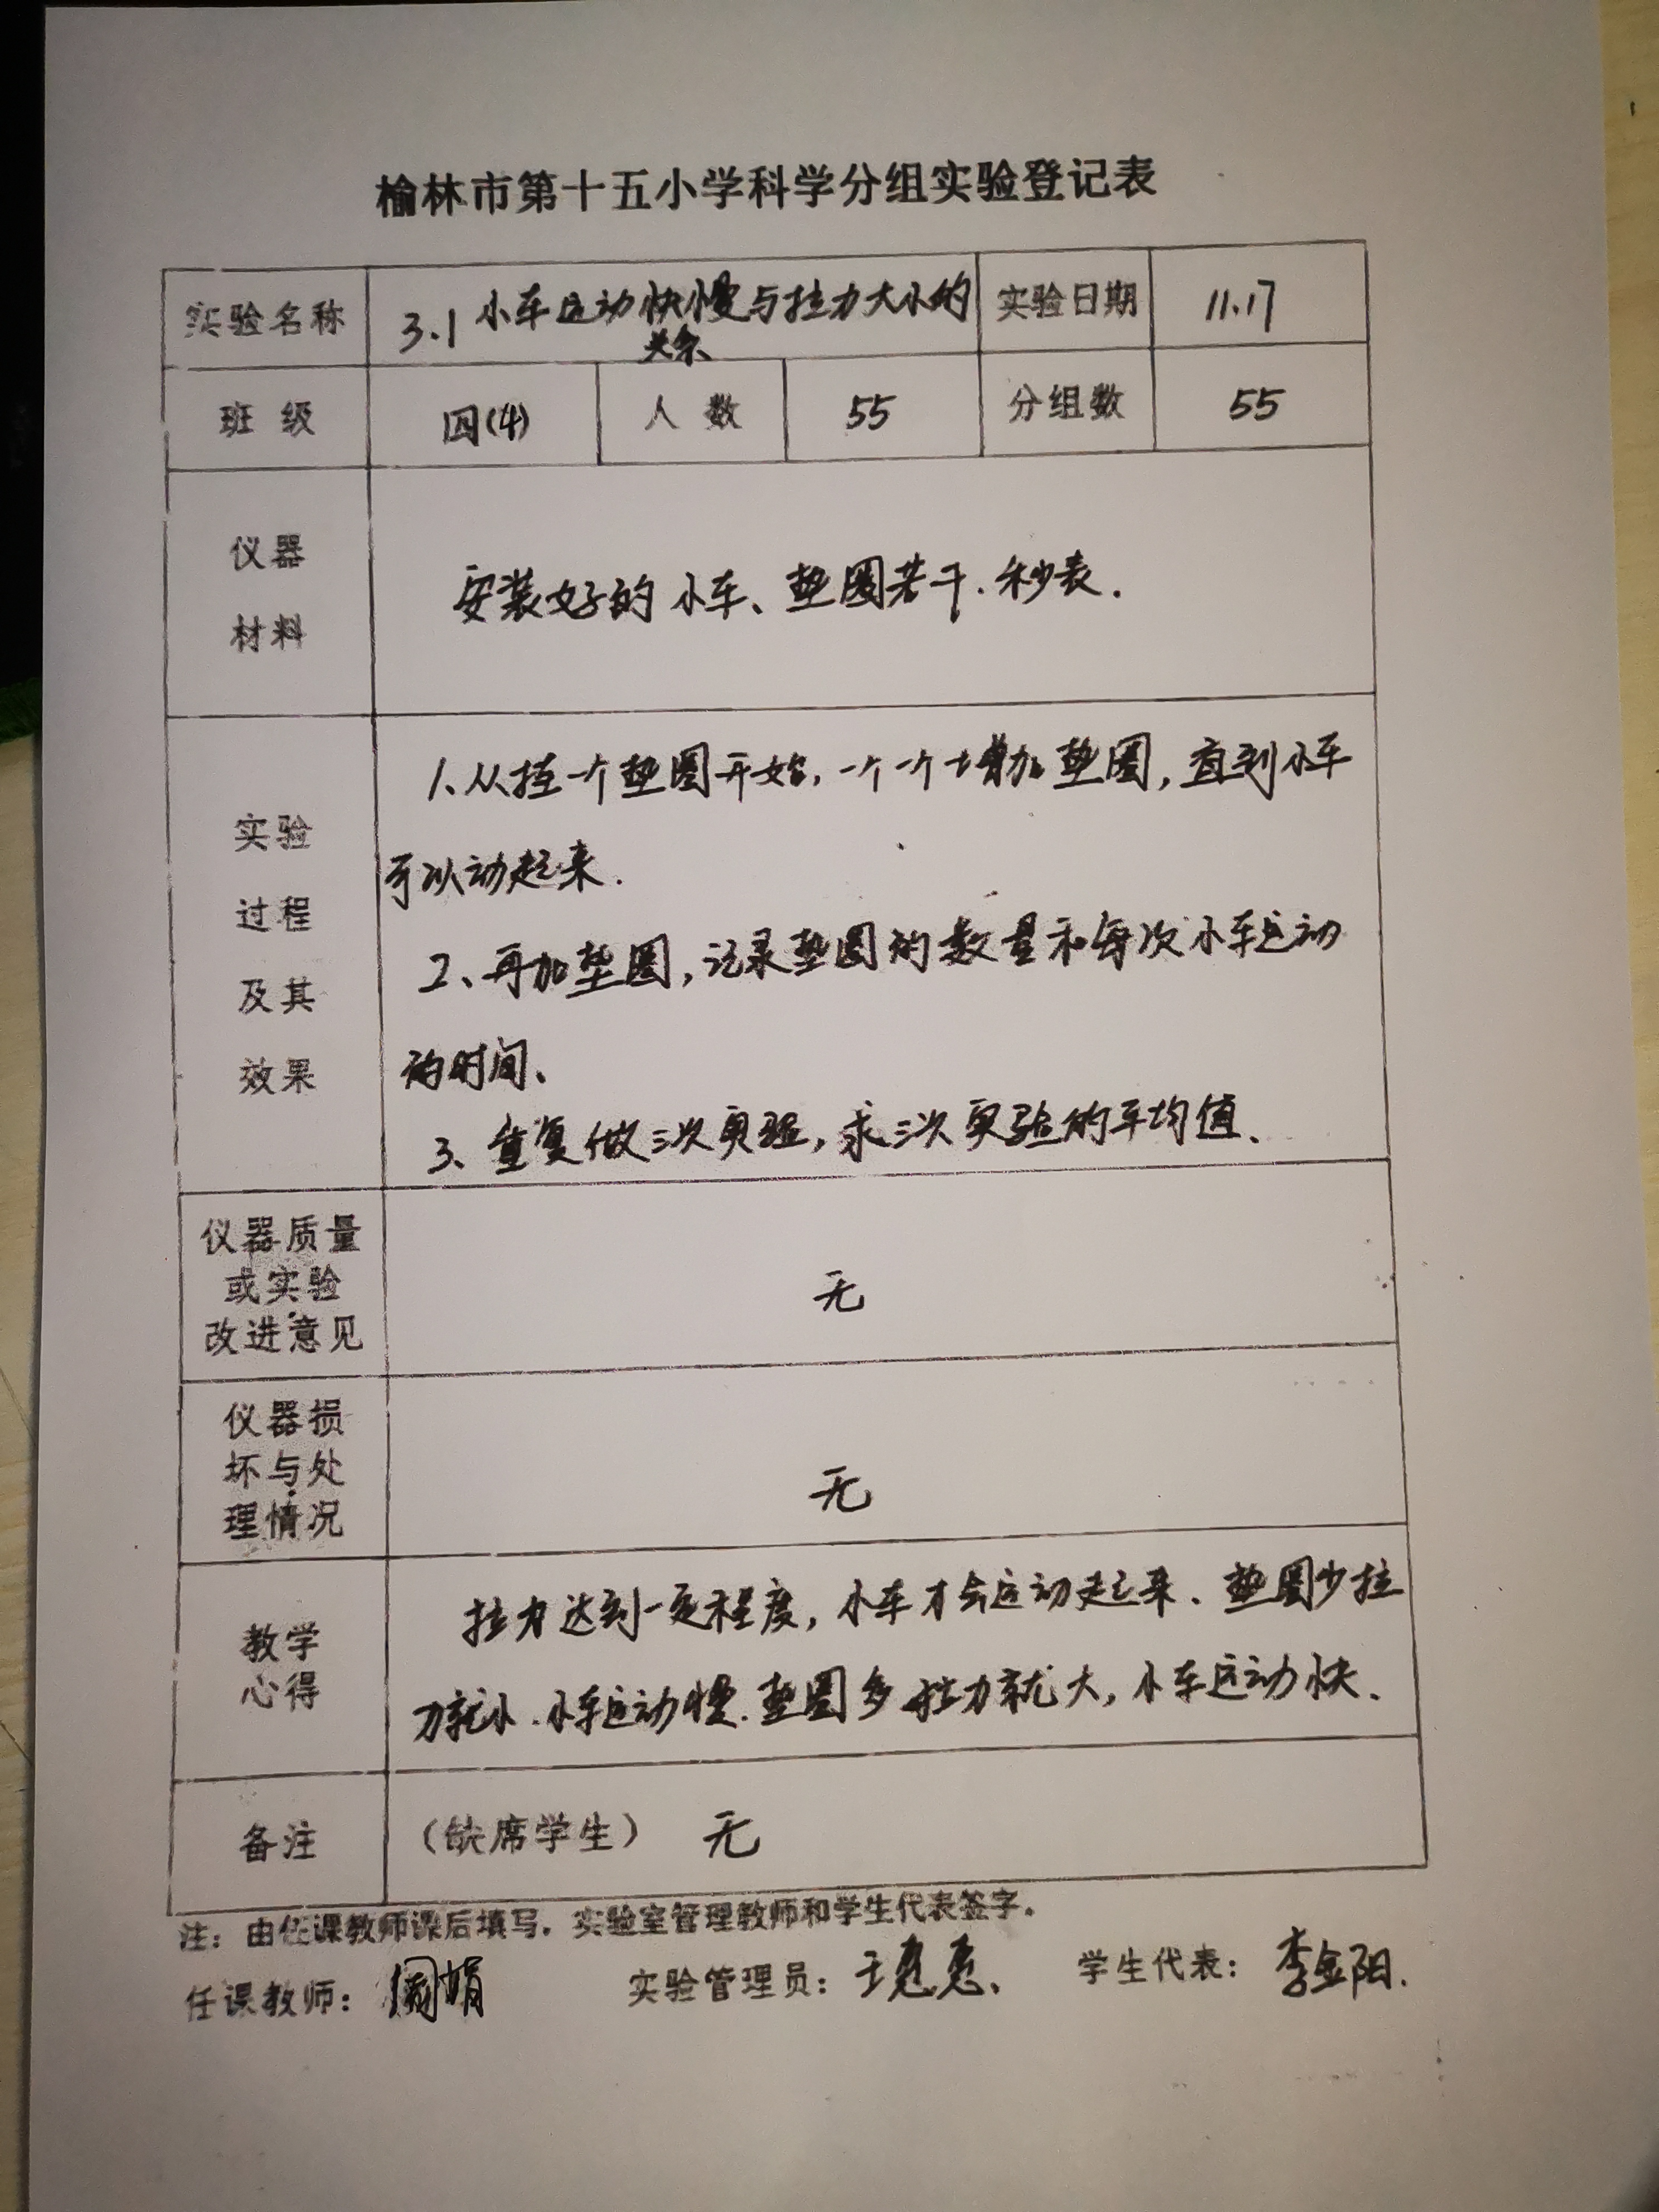 榆林市第十五小学科学分组实验登记表
实验名称 3.1 小车运动快慢与拉力大小的 实验日期 11.17
关系
班 级 四(4) 人 数 55 分组数 55
仪器
材料
安装好的小车、垫圈若干.秒表.
实验
过程
及其
效果
1、从挂一个垫圈开始,一个个增加垫圈,直到小车
可以动起来.
2、再加垫圈,记录垫圈的数量和每次小车运动
的时间、
3、重复做三次实验,求三次实验的平均值、
仪器质量
或实验
改进意见
无
仪器损
坏与处
理情况
无
教学
心得
拉力达到一定程度,小车才会运动起来、垫圈少拉
力就小.小车运动慢.垫圈多拉力就大,小车运动快、
备注 (缺席学生) 无
注:由任课教师课后填写,实验室管理教师和学生代表签字。
任课教师: 娟 实验管理员: 惠惠、 学生代表: 李金阳.